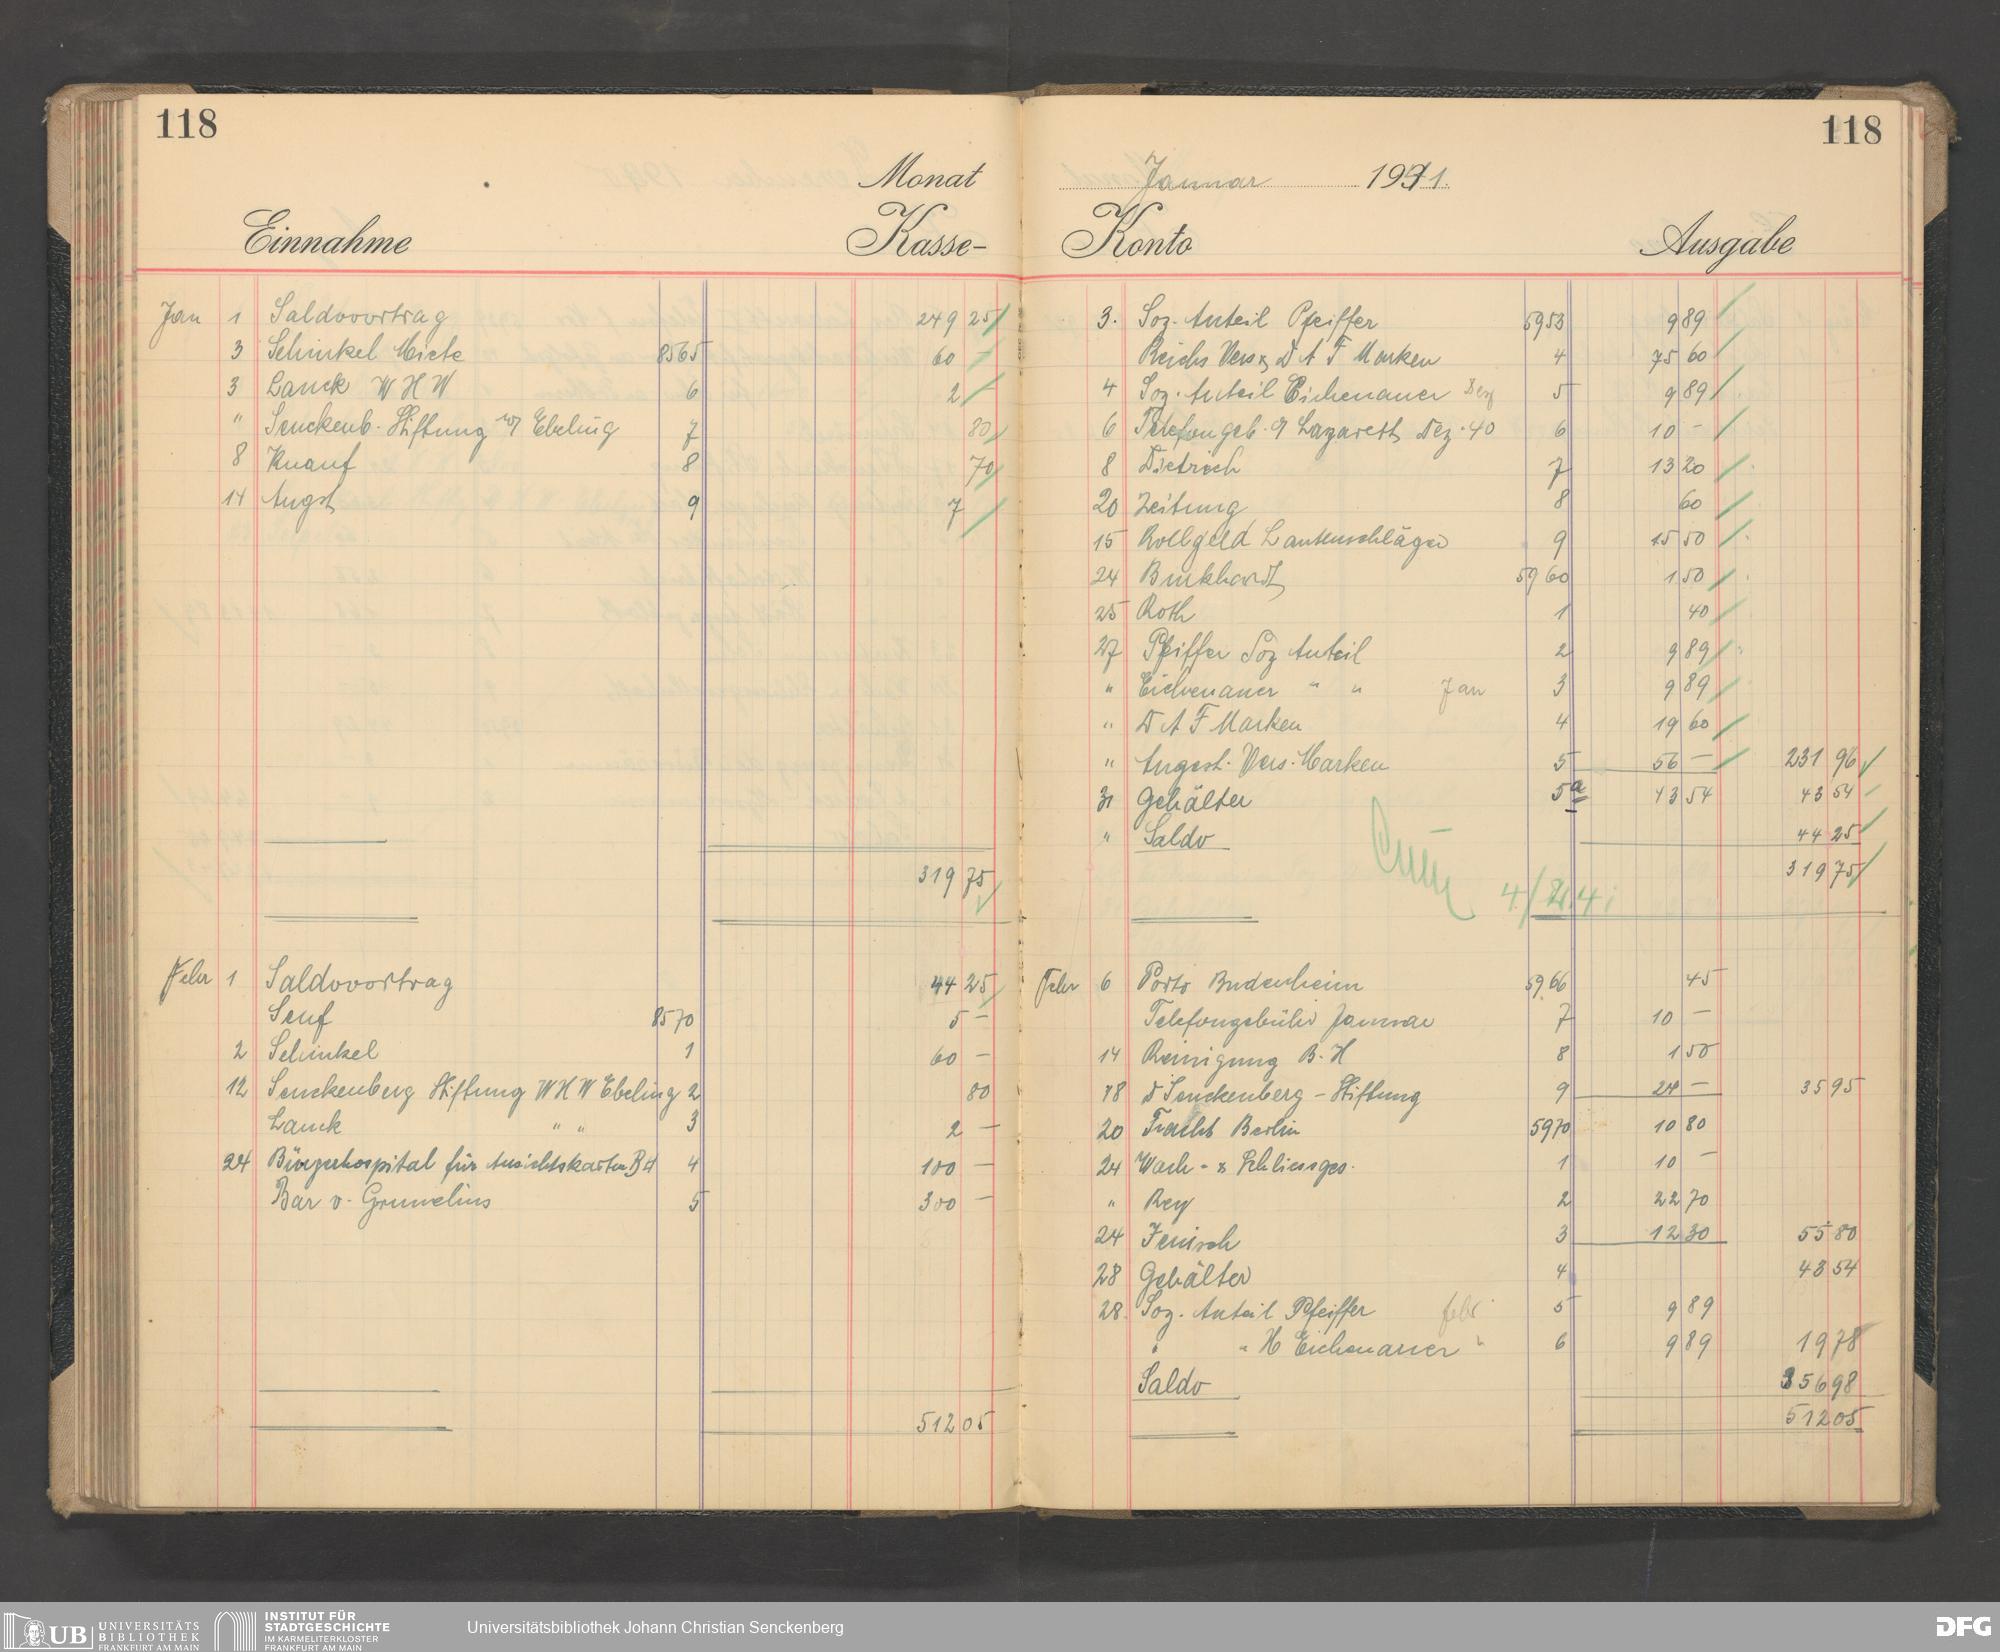 118
Monat
Einnahme Kasse-
Jan 1 Saldovortrag 249 25
3 Schinkel Miete 8565 60 –
3 Lanck W H W 6 2 –
" Senckenb. Stiftung Ebeling 7 80
8 Knauf 8 70
14 Angst 9 7
319 75
Febr 1 Saldovortrag 44 25
Senf 8570 5 –
2 Schinkel 1 60 –
12 Senckenberg Stiftung W H W Ebeling 2 80
Lanck " " 3 2 –
24 Bürgerhospital für Ansichtskarten B H 4 100 –
Bar v. Grunelius 5 300 –
512 05
118
Januar 1941.
Konto Ausgabe
3. Soz. Anteil Pfeiffer 5953 9 89
Reichs Vers & D A F Marken 4 75 60
4 Soz. Anteil Eichenauer Dez 5 9 89
6 Telefongeb. Lazarett Dez. 40 6 10 –
8 Dietrich 7 13 20
20 Zeitung 8 60
15 Rollgeld Lautenschläger 9 15 50
24 Burkhardt 5960 1 50
25 Roth 1 40
27 Pfeiffer Soz Anteil 2 9 89
" Eichenauer " " Jan 3 9 89
" D A F Marken 4 19 60
" Angest. Vers. Marken 5 56 – 231 96
31 Gehälter 5a 43 54 43 54
" Saldo 44 25
319 75
4/2.41
Febr 6 Porto Budenheim 5966 45
Telefongebühr Januar 7 10 –
14 Reinigung B. H 8 1 50
18 D Senckenberg – Stiftung 9 24 – 35 95
20 Fracht Berlin 5970 10 80
24 Wach- & Schliessges. 1 10 –
" Rey 2 22 70
24 Jenisch 3 12 30 55 80
28 Gehälter 4 43 54
28. Soz. Anteil Pfeiffer febr 5 9 89
" " H Eichenauer " 6 9 89 19 78
Saldo 356 98
512 05
UB UNIVERSITÄTS
BIBLIOTHEK
FRANKFURT AM MAIN
INSTITUT FÜR
STADTGESCHICHTE
IM KARMELITERKLOSTER
FRANKFURT AM MAIN
Universitätsbibliothek Johann Christian Senckenberg
DFG